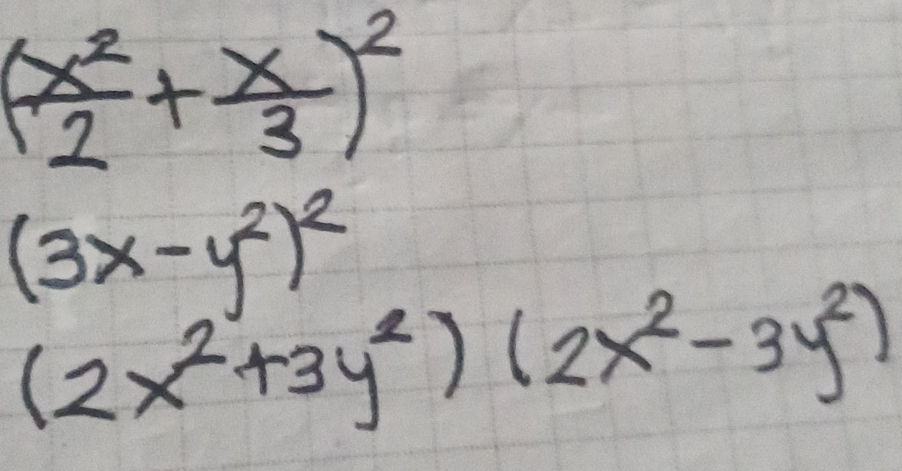 (x²/2 + x/3)²
(3x - y²)²
(2x² + 3y²) (2x² - 3y²)